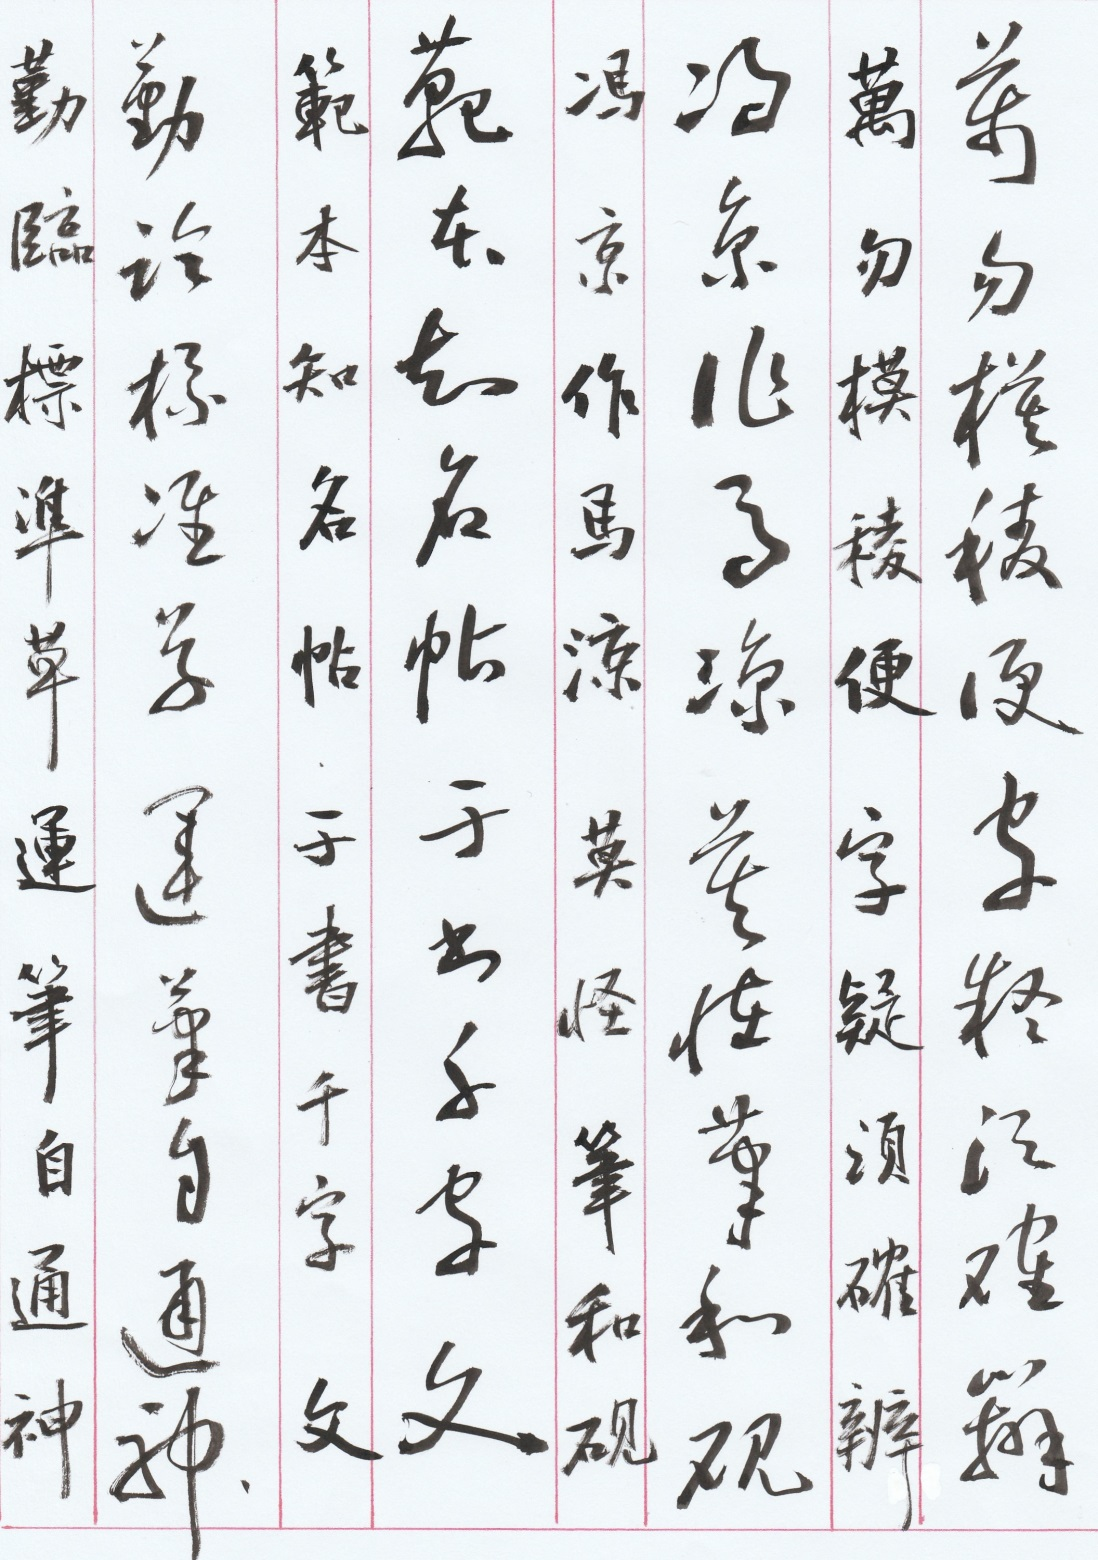 萬勿模稜便字疑須確辨
萬勿模稜便字疑須確辨
冯京作馬涼莫怪筆和砚
冯京作馬凉莫怪筆和砚
範本知名帖于書千字文
範本知名帖于书千字文
勤临標准草運筆自通神
勤臨標準草運筆自通神